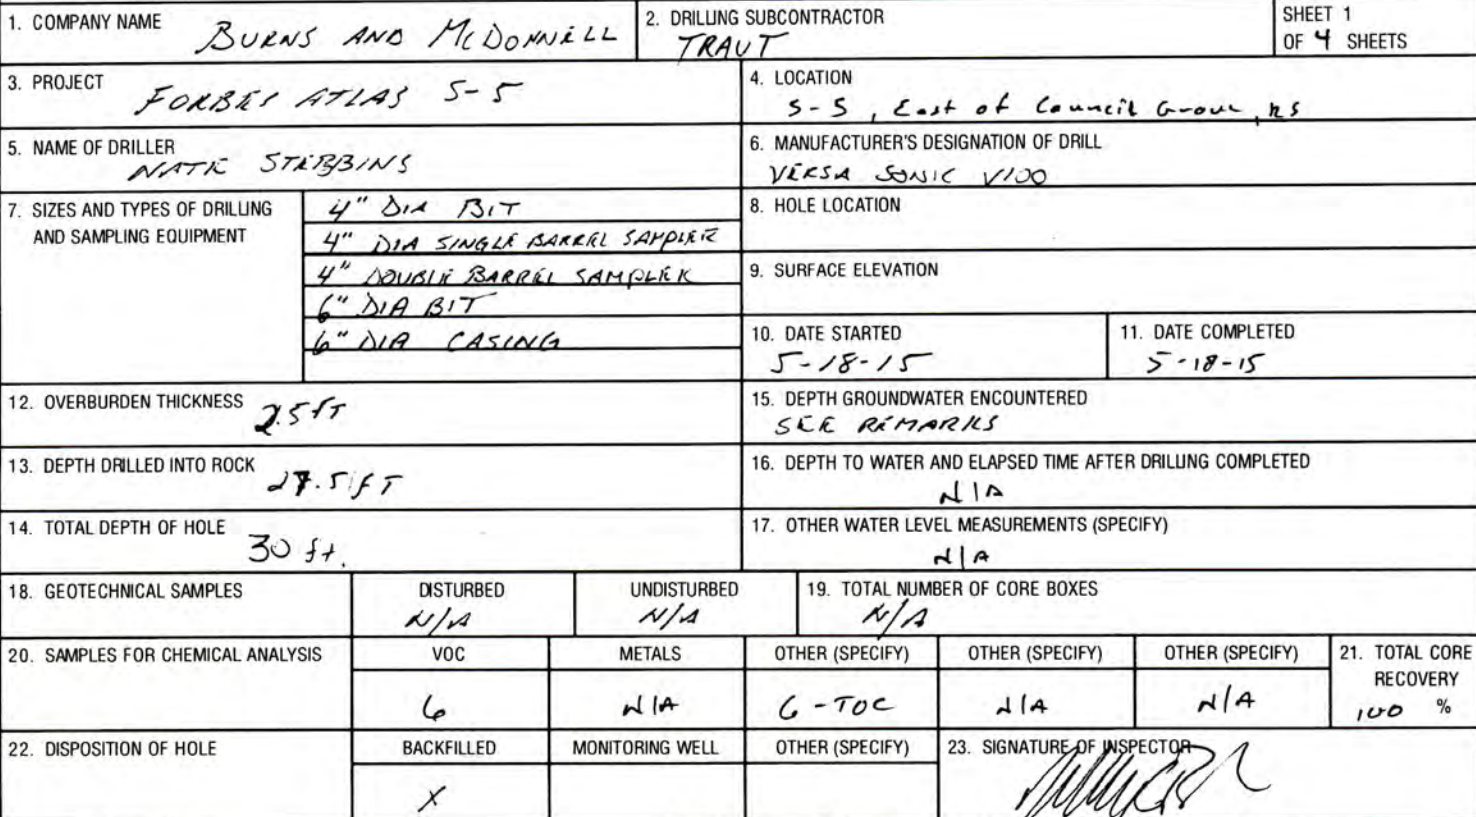 1. COMPANY NAME BURNS AND MCDONNELL
2. DRILLING SUBCONTRACTOR
TRAUT
SHEET 1
OF 4 SHEETS
3. PROJECT FORBES ATLAS S-5
4. LOCATION
S-5, East of Council Grove, KS
5. NAME OF DRILLER
NATE STEBBINS
6. MANUFACTURER'S DESIGNATION OF DRILL
VERSA SONIC V100
7. SIZES AND TYPES OF DRILLING
AND SAMPLING EQUIPMENT
4" DIA BIT
4" DIA SINGLE BARREL SAMPLER
4" DOUBLE BARREL SAMPLER
6" DIA BIT
6" DIA CASING
8. HOLE LOCATION
9. SURFACE ELEVATION
10. DATE STARTED
5-18-15
11. DATE COMPLETED
5-18-15
12. OVERBURDEN THICKNESS 2.5 fT
15. DEPTH GROUNDWATER ENCOUNTERED
SEE REMARKS
13. DEPTH DRILLED INTO ROCK 27.5 fT
16. DEPTH TO WATER AND ELAPSED TIME AFTER DRILLING COMPLETED
N/A
14. TOTAL DEPTH OF HOLE 30 ft.
17. OTHER WATER LEVEL MEASUREMENTS (SPECIFY)
N/A
18. GEOTECHNICAL SAMPLES
DISTURBED
N/A
UNDISTURBED
N/A
19. TOTAL NUMBER OF CORE BOXES
N/A
20. SAMPLES FOR CHEMICAL ANALYSIS
VOC
6
METALS
N/A
OTHER (SPECIFY)
6-TOC
OTHER (SPECIFY)
N/A
OTHER (SPECIFY)
N/A
21. TOTAL CORE
RECOVERY
100 %
22. DISPOSITION OF HOLE
BACKFILLED
X
MONITORING WELL
OTHER (SPECIFY)
23. SIGNATURE OF INSPECTOR